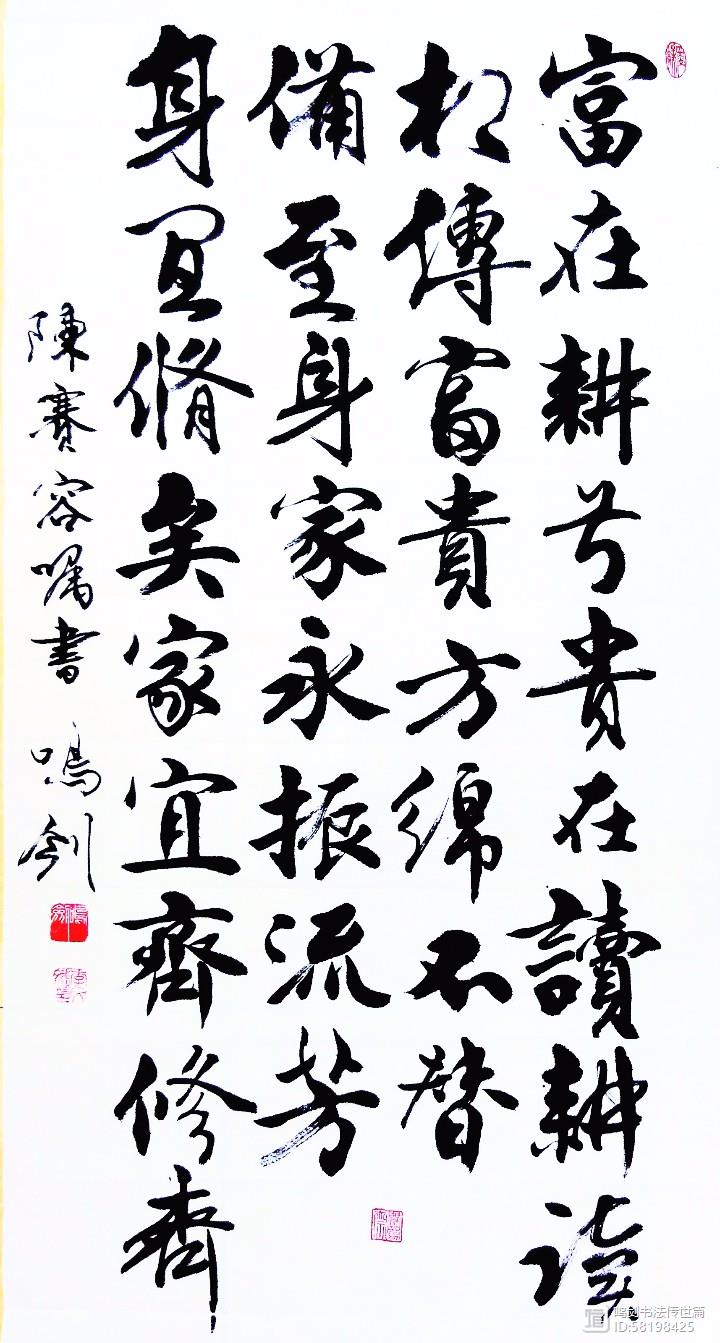 富在耕兮貴在讀耕讀
相傳富貴方綿不替
身宜脩矣家宜齊修齊
備至身家永振流芳
陳賽容嘱書 鳴剑
鸣剑书法传世篇
ID:58198425